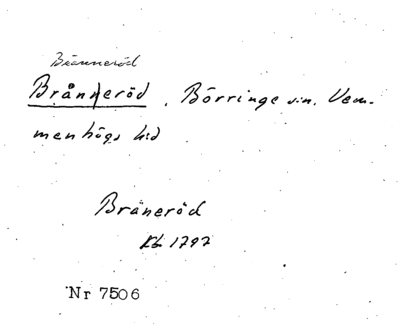 Bränneröd
Bränneröd, Börringe sn. Vem-
menhögs hd
Bräneröd
Kb 1797
Nr 7506